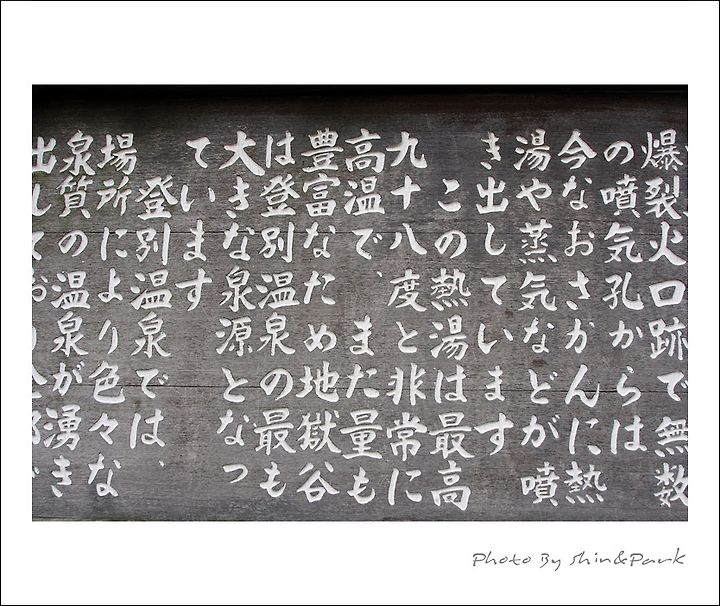 爆裂火口跡で無数
の噴気孔からは
今なおさかんに熱
湯や蒸気などが噴
き出しています
この熱湯は最高
九十八度と非常に
高温で、また量も
豊富なため地獄谷
は登別温泉の最も
大きな泉源となっ
ています
登別温泉では、
場所により色々な
泉質の温泉が湧き
出しており全部で
Photo By Shin&Park